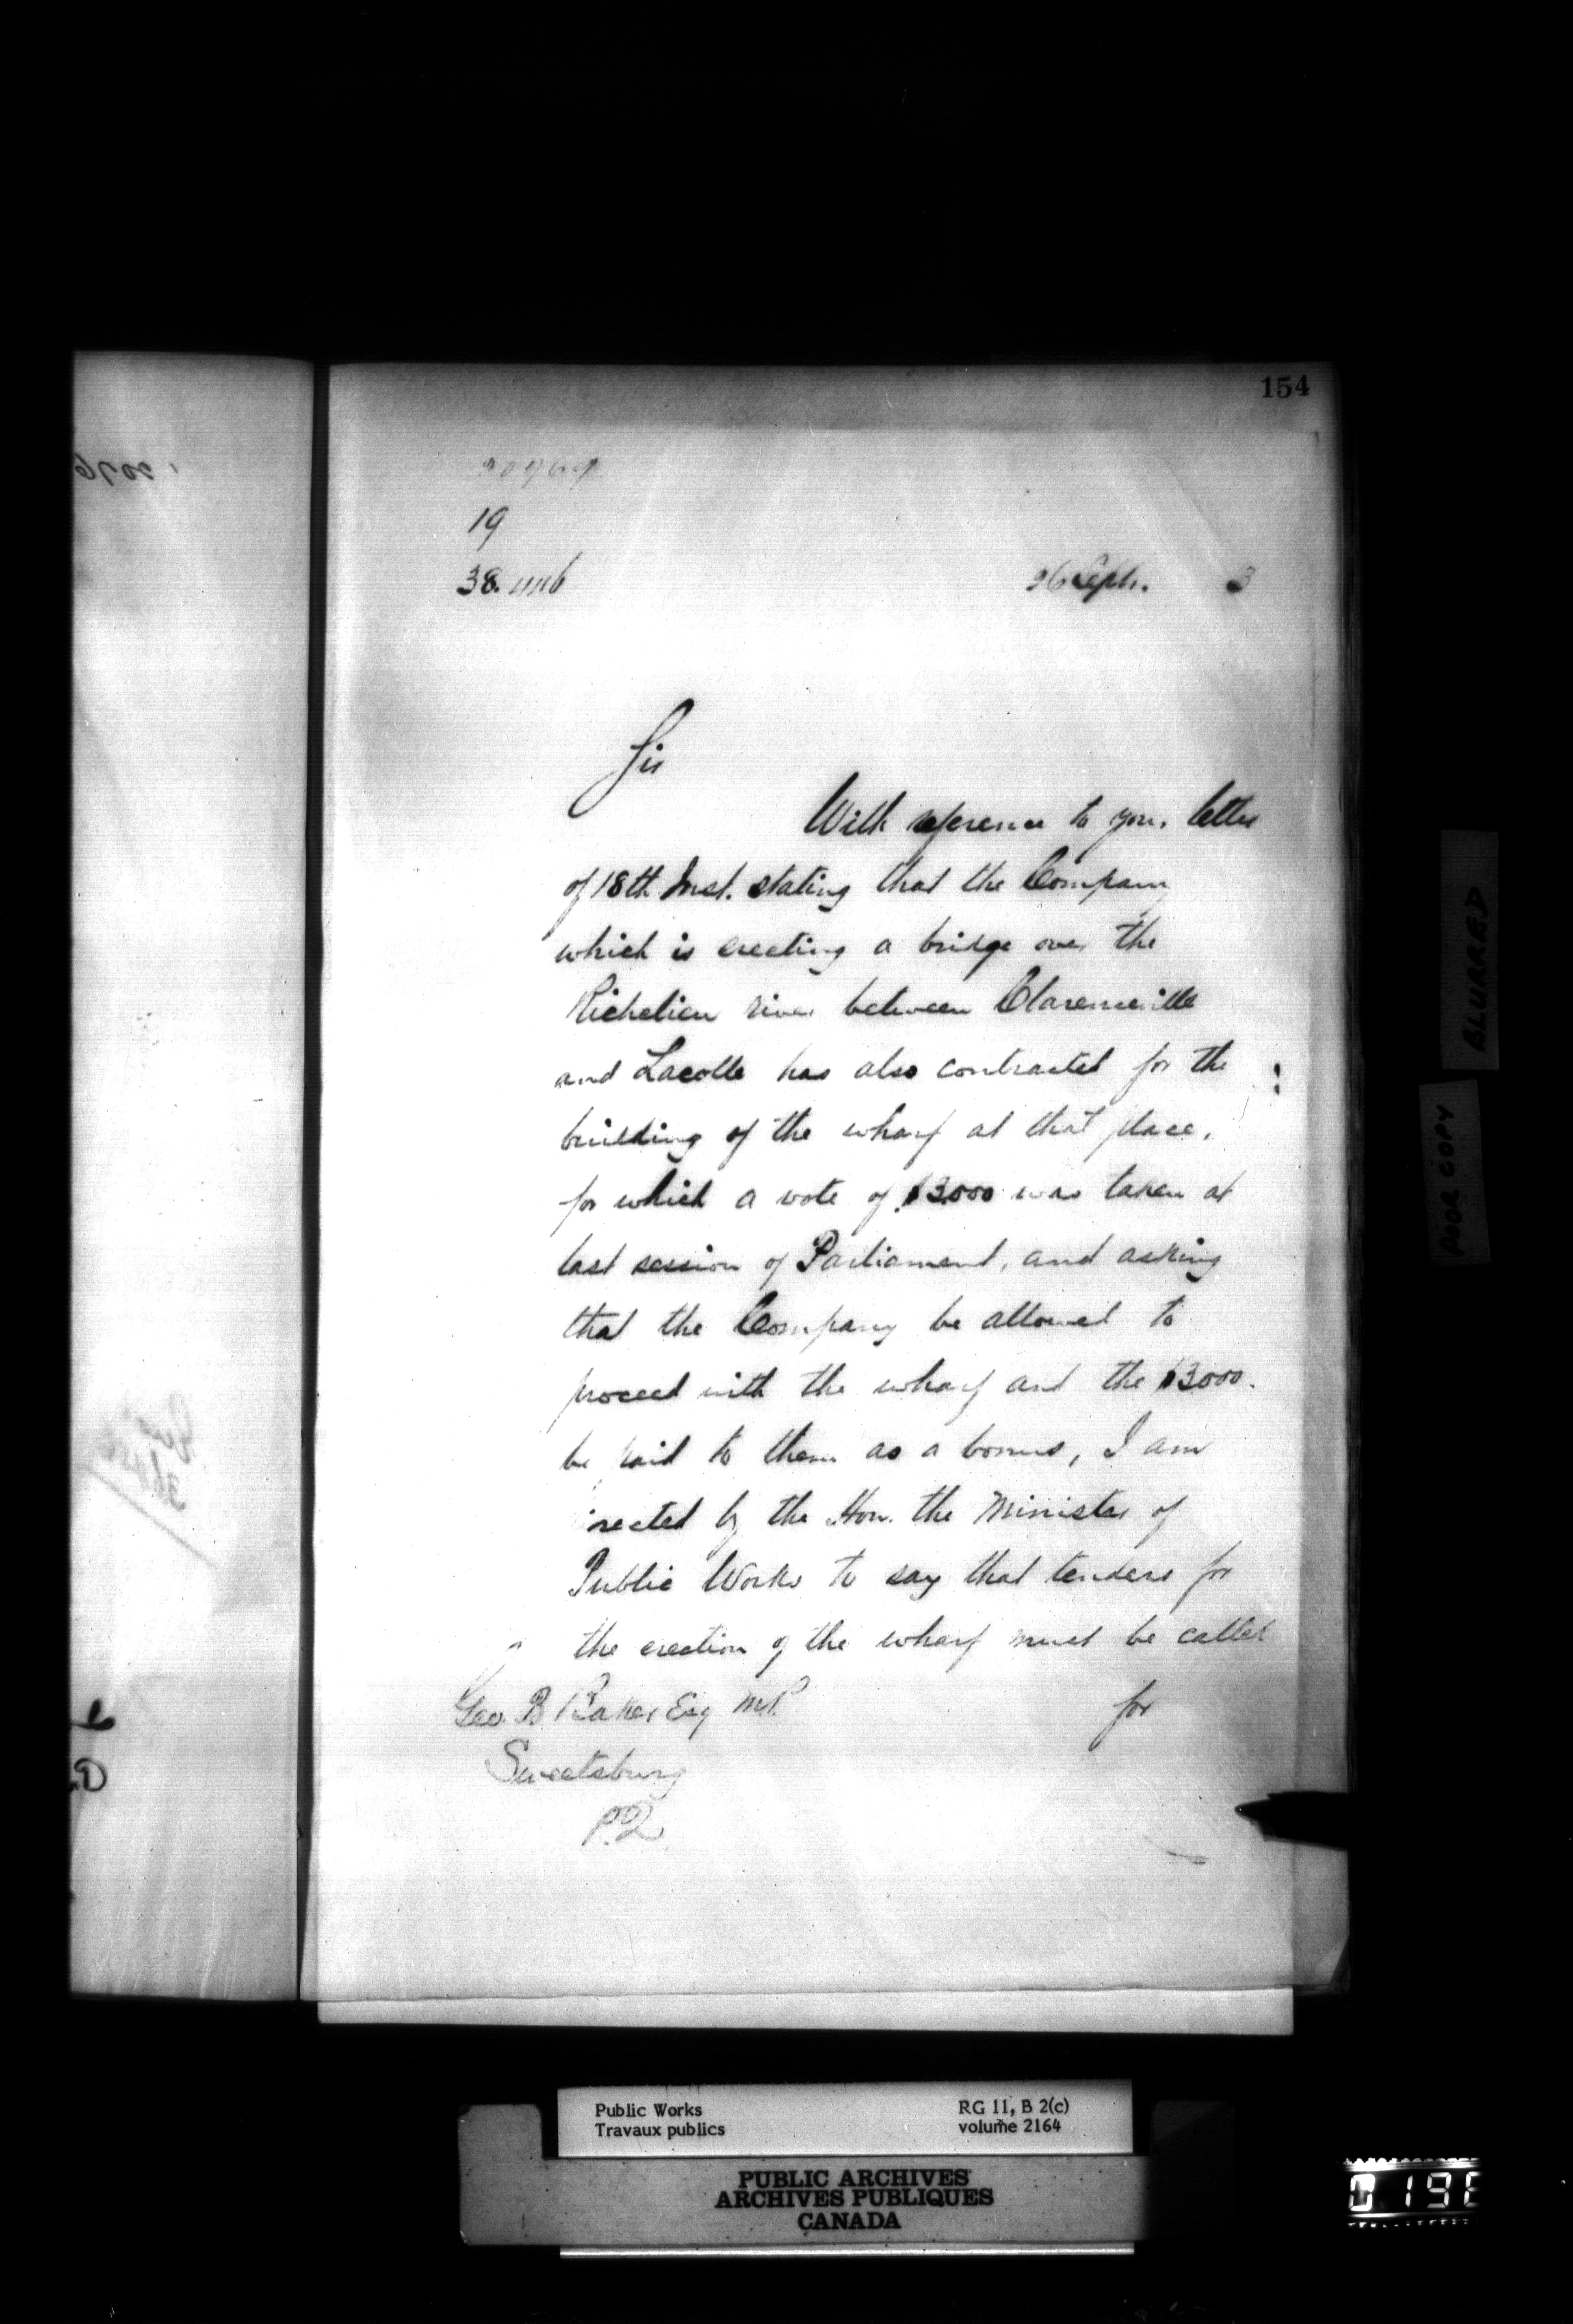 154
19
38.446
26 Sept. 3
Sir
With reference to your letter
of 18th Inst. stating that the Company
which is erecting a bridge over the
Richelieu river between Clarenceville
and Lacolle has also contracted for the
building of the wharf at that place,
for which a vote of $3000 was taken at
last session of Parliament, and asking
that the Company be allowed to
proceed with the wharf and the $3000.
be paid to them as a bonus, I am
irected by the Hon. the Minister of
Public Works to say that tenders for
the erection of the wharf must be called
Geo. B. Baker Esq M.P.
for
Sweetsburg
P.Q.
BLURRED
POOR COPY
Public Works
Travaux publics
RG 11, B 2(c)
volume 2164
PUBLIC ARCHIVES
ARCHIVES PUBLIQUES
CANADA